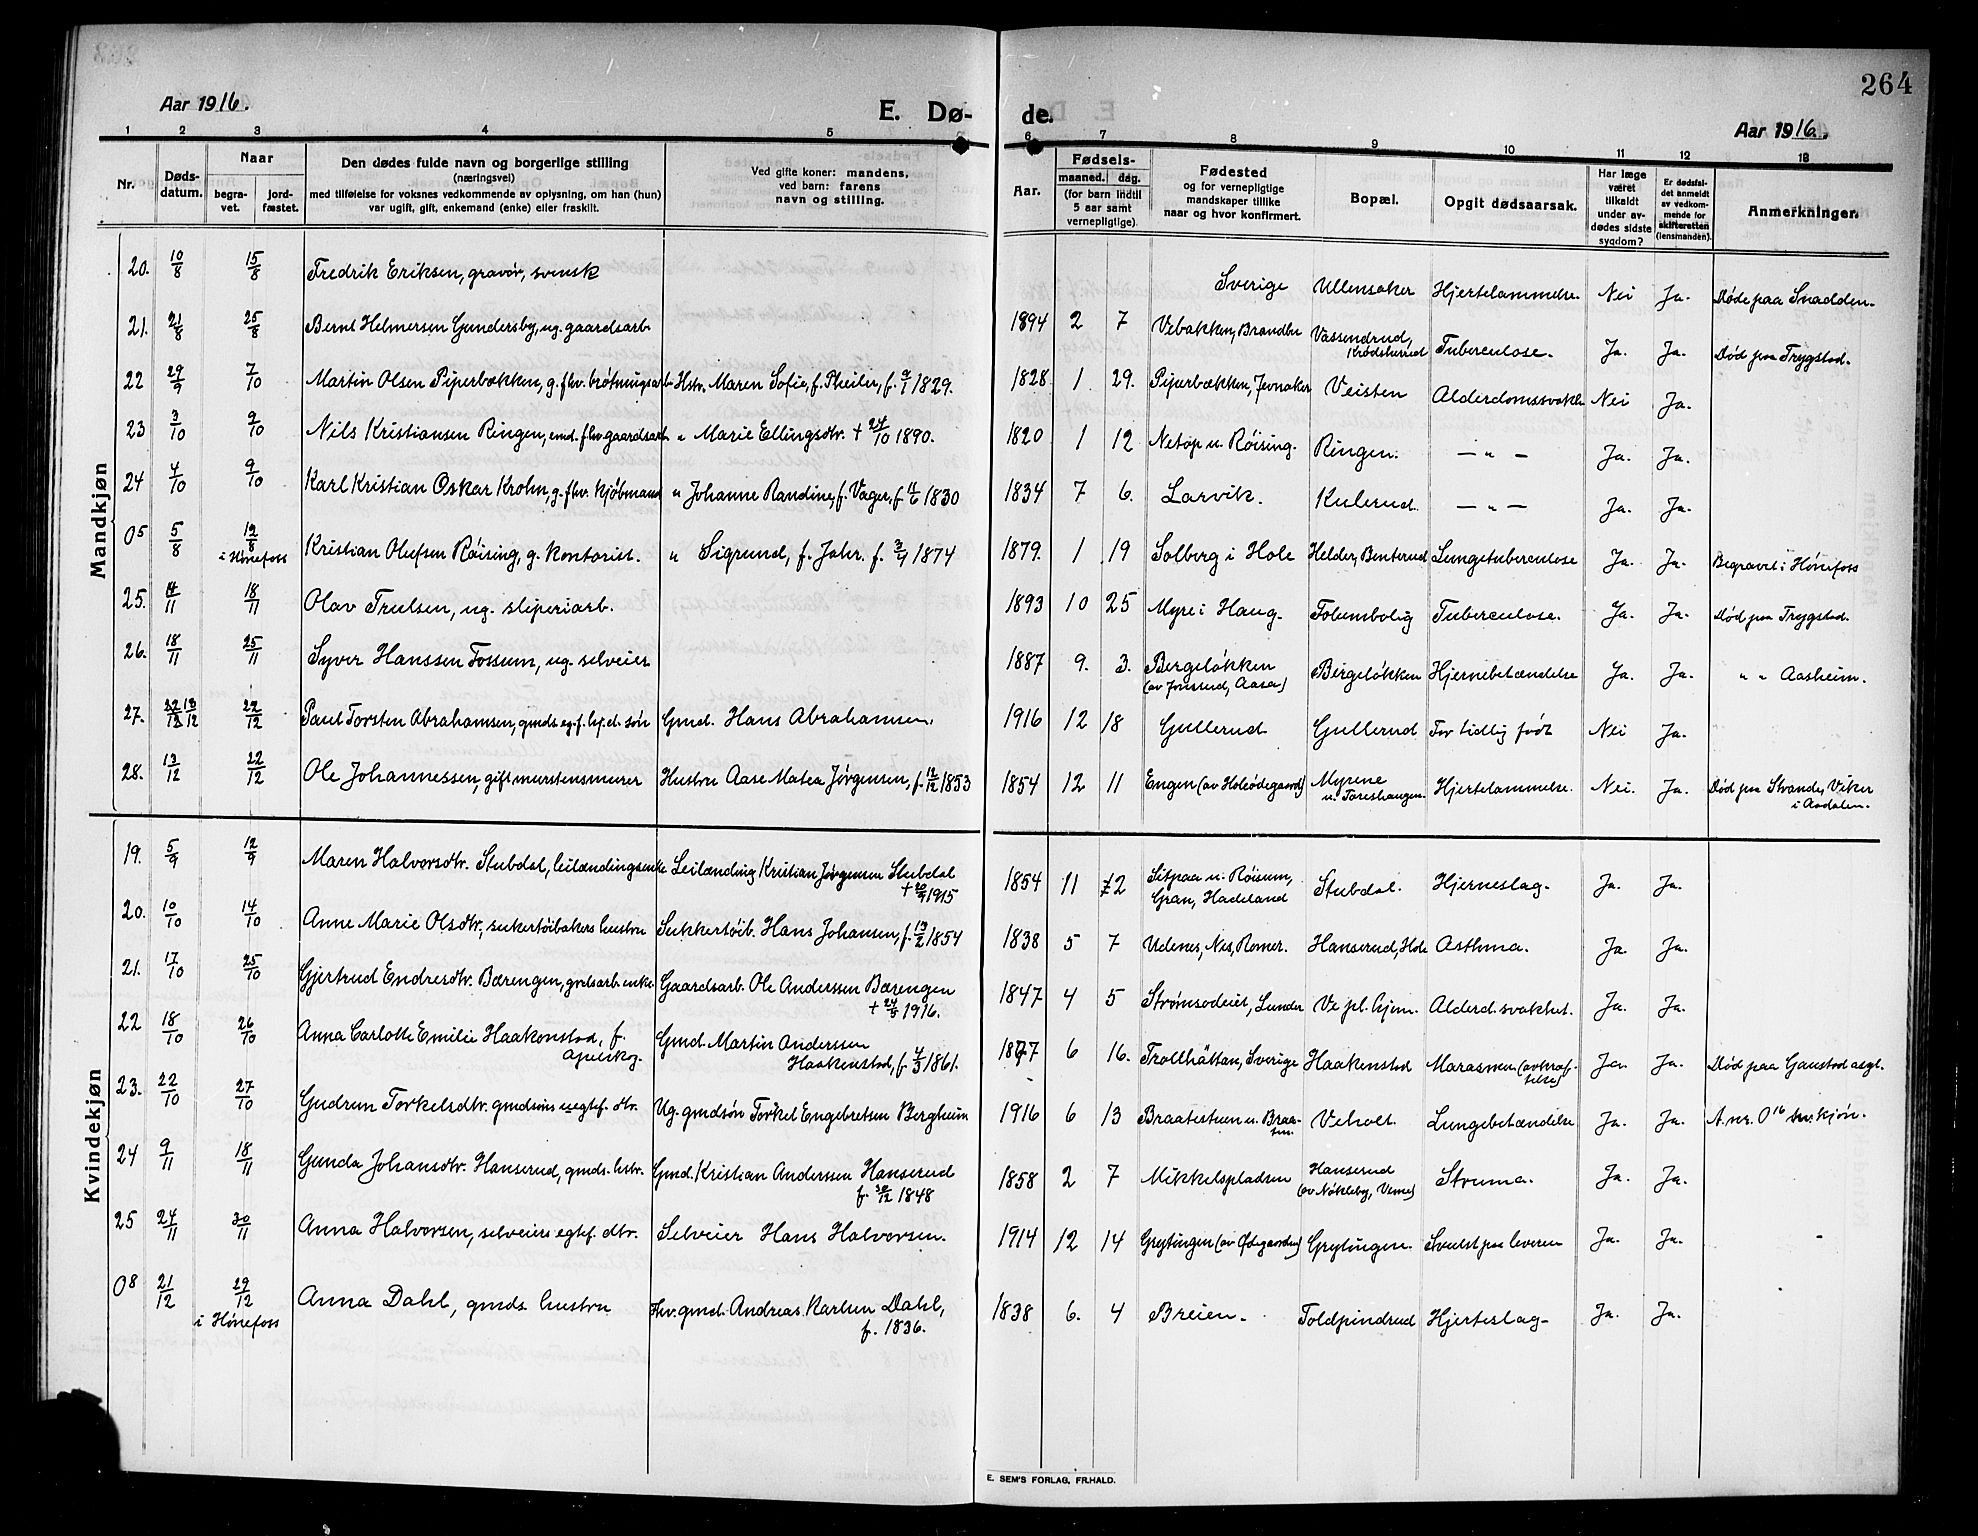 264
Aar 1916.
E. Dø-
de.
Aar 1916.
1 2 3 4 5 6 7 8 9 10 11 12 13
Nr.
Døds-
datum.
Naar
begra-
vet.
jord-
fæstet.
Den dødes fulde navn og borgerlige stilling
(næringsvei)
med tilføielse for voksnes vedkommende av oplysning, om han (hun)
var ugift, gift, enkemand (enke) eller fraskilt.
Ved gifte koner: mandens,
ved barn: farens
navn og stilling.
Aar.
Fødsels-
maaned. dag.
(for barn indtil
5 aar samt
vernepligtige).
Fødested
og for vernepligtige
mandskaper tillike
naar og hvor konfirmert.
Bopæl.
Opgit dødsaarsak.
Har læge
været
tilkaldt
under av-
dødes sidste
sygdom?
Er dødsfal-
det anmeldt
av vedkom-
mende for
skifteretten
(lensmanden).
Anmerkninger.
Mandkjøn
20. 10/8 15/8 Fredrik Eriksen, gravør, svensk Sverige Ullensaker Hjertelammelse. Nei Ja. Døde paa Snadden.
21. 21/8 25/8 Bernt Helmersen Gundersby, ug. gaardsarb. 1894 2 7 Vebakken, Brandbu Vassendrud,
Krødsherred Tuberculose. Ja. Ja. Død paa Trygstad.
22 29/9 7/10 Martin Olsen Piperbækken, g. fhv. brøtningsarb. Hstr. Maren Sofie, f. Pheiler, f. 9/1 1829. 1828. 1 29. Piperbækken, Jevnaker Veisten Alderdomssvakh. Nei Ja.
23 3/10 9/10 Nils Kristiansen Ringen, emd. fhv. gaardsarb. " Marie Ellingsdtr. + 24/10 1890. 1820 1 12 Netop u. Røising. Ringen. — " — Ja. Ja.
24 4/10 9/10 Karl Kristian Oskar Krohn, g. fhv. kjøbmand " Johanne Randine, f. Vager, f. 11/6 1830 1834 7 6. Larvik. Kulerud. — " — Ja. Ja.
05 5/8 12/8
i Hønefoss Kristian Olufsen Røising, g. kontorist. " Sigrund, f. Jahr. f. 3/9 1874 1879. 1 19 Solberg i Hole Helder, Benterud Lungetuberculose Ja. Ja. Begravet i Hønefoss
25. 14/11 18/11 Olav Trulsen, ug. sliperiarb. 1893 10 25 Myre i Haug. Folumbolig Tuberculose. Ja. Ja. Død paa Trygstad.
26. 18/11 25/11 Syver Hanssen Fossum, ug. selveier 1887 9. 3. Bergeløkken Bergeløkken Hjernebetændelse Ja. Ja. " " Aasheim.
27. 22/12 13/12 22/12 Paul Torsten Abrahamsen, gmds eg. f. hj. d. søn Gmd. Hans Abrahamsen. 1916 12 18 Gullerud Gullerud For tidlig født Nei Ja.
28. 13/12 22/12 Ole Johannessen, gift murstensmurer Hustru Aase Matea Jørgensen, f. 12/12 1853 1854 12 11 Engen (av Holeødegaard) Myrene
u. Toreshaugen. Hjertelammelse. Nei. Ja. Død paa Strande, Viker
i Aadalen.
Kvindekjøn
19. 5/9 12/9 Maren Halvorsdtr. Stubdal, leilændingsenke Leilænding Kristian Jørgensen Stubdal
+ 20/9 1915 1854 11 22 Sitpaa u. Røisum,
Gran, Hadeland Stubdal. Hjerneslag. Ja. Ja.
20. 10/10 14/10 Anne Marie Olsdtr., sukkertøibakers hustru Sukkertøib. Hans Johansen, f. 13/2 1854 1838 5 7 Udenes, Nes, Romer. Hanserud, Hole Asthma. Ja. Ja.
21. 17/10 25/10 Gjertrud Endresdtr. Bærengen, grdsarb. enke Gaardsarb. Ole Anderssen Bærengen
+ 24/5 1916. 1847 4 5 Strømsodeiet, Lunder Ve pl. hjem. Alderd. svakhet. Ja. Ja.
22 18/10 26/10 Anna Carlotte Emilie Haakonstad, f.
Apelskog. Gmd. Martin Anderssen
Haakenstad, f. 4/3 1861. 1877 6 16. Trollhättan, Sverige Haakenstad Marasmen (avkræf-
telse) Ja. Ja. Død paa Gaustad asyl.
23. 22/10 27/10 Gudrun Torkelsdtr. gmdsøns uegtef. dtr. Ug. gmdsøn Torkel Engebretsen Bergheim 1916 6 13 Braatesteen u. Braa-
ten. Veholt. Lungebetændelse Ja. Ja. A. nr. 016 kv.kjøn.
24 9/11 18/11 Gunda Johansdtr. Hanserud, gmds. hstr. Gmd. Kristian Andersen Hanserud
f. 30/12 1848 1858 2 7 Mikkelspladsen Hanserud
(av Nøkleby, Veme) Struma. Ja. Ja.
25 24/11 30/11 Anna Halvorsen, selveiers egtef. dtr. Selveier Hans Halvorsen. 1914 12 14 Grytingen (av Ødegaarden) Grytingen. Svulst paa leveren Ja. Ja.
08 21/12 29/12
i Hønefoss Anna Dahl, gmds. hustru Fhv. gmd. Andreas Karlsen Dahl,
f. 1836. 1838 6. 4 Breien. Toldpindrud Hjerteslag. Ja. Ja.
E. SEM'S FORLAG, FR.HALD.